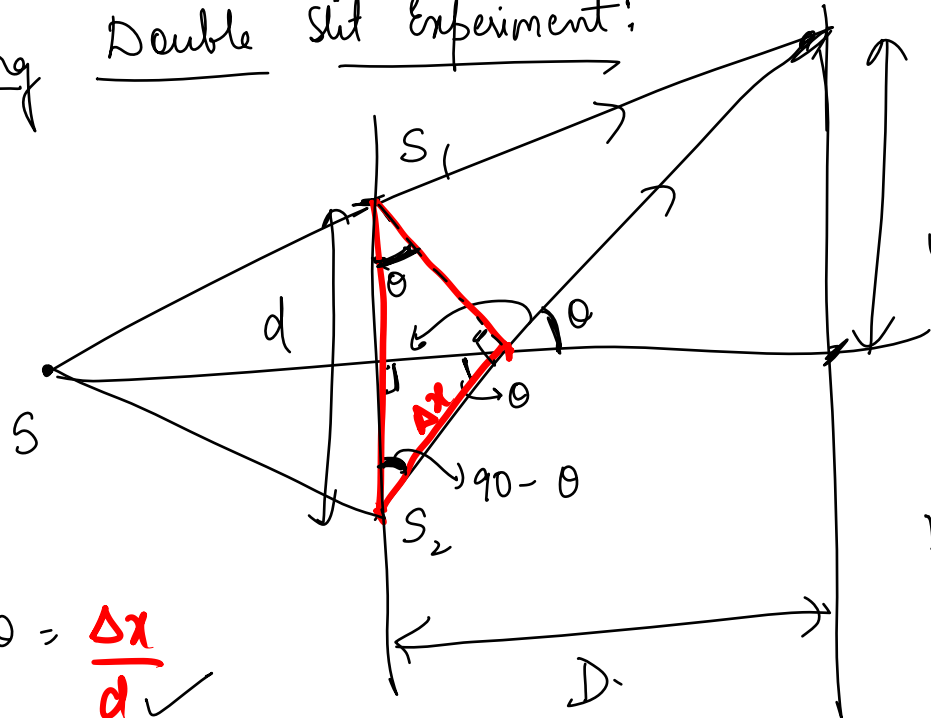 ng Double Slit Experiment:
S₁
θ
d
θ
S
Δx
θ
90 - θ
S₂
θ = Δx/d
D